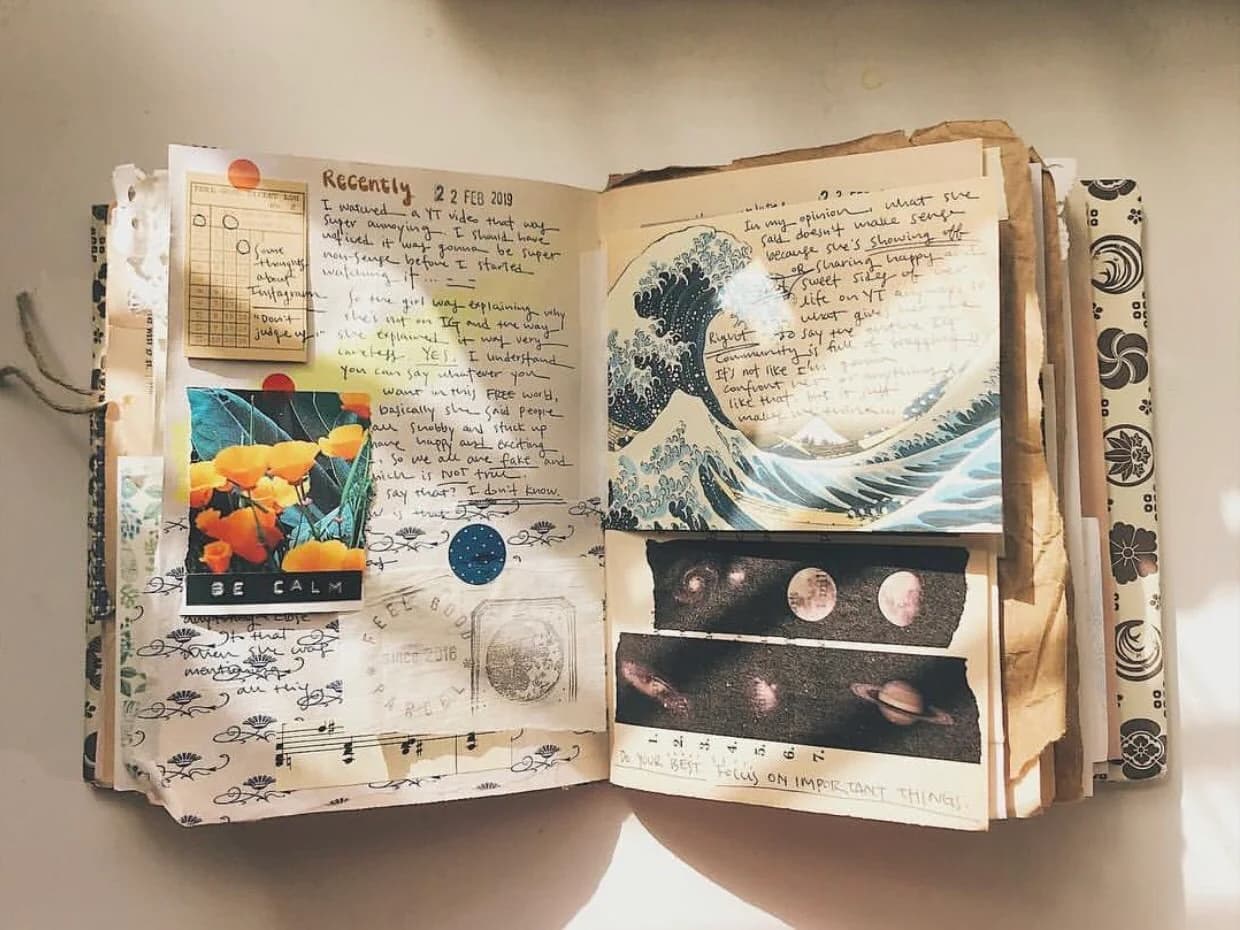 Recently 22 FEB 2019
I watched a YT video that was
super annoying. I should have
noticed it was gonna be super
non-sense before I started
watching it...
So the girl was explaining why
she's not on IG and the way
she explained it was very
careless. YES. I understand
you can say whatever you
want in this FREE world,
basically she said people
are snobby and stuck up
have happy and exciting
So we all are fake and
which is NOT true.
say that? I don't know.
is that
Some
thoughts
about
Instagram
"Don't
judge us"
BE CALM
anything else
It that
when she was
mentioning
all this
FEEL GOOD
SINCE 2016
PARCEL
22 FEB
In my opinion, what she
said doesn't make sense
because she's showing off
OR sharing happy
sweet sides of her
life on YT
what give
Right to say the entire IG
community is full of bragging
It's not like I'm gonna
confront her or anything
like that but it just
1. 2. 3. 4. 5. 6. 7.
DO YOUR BEST FOCUS ON IMPORTANT THINGS.